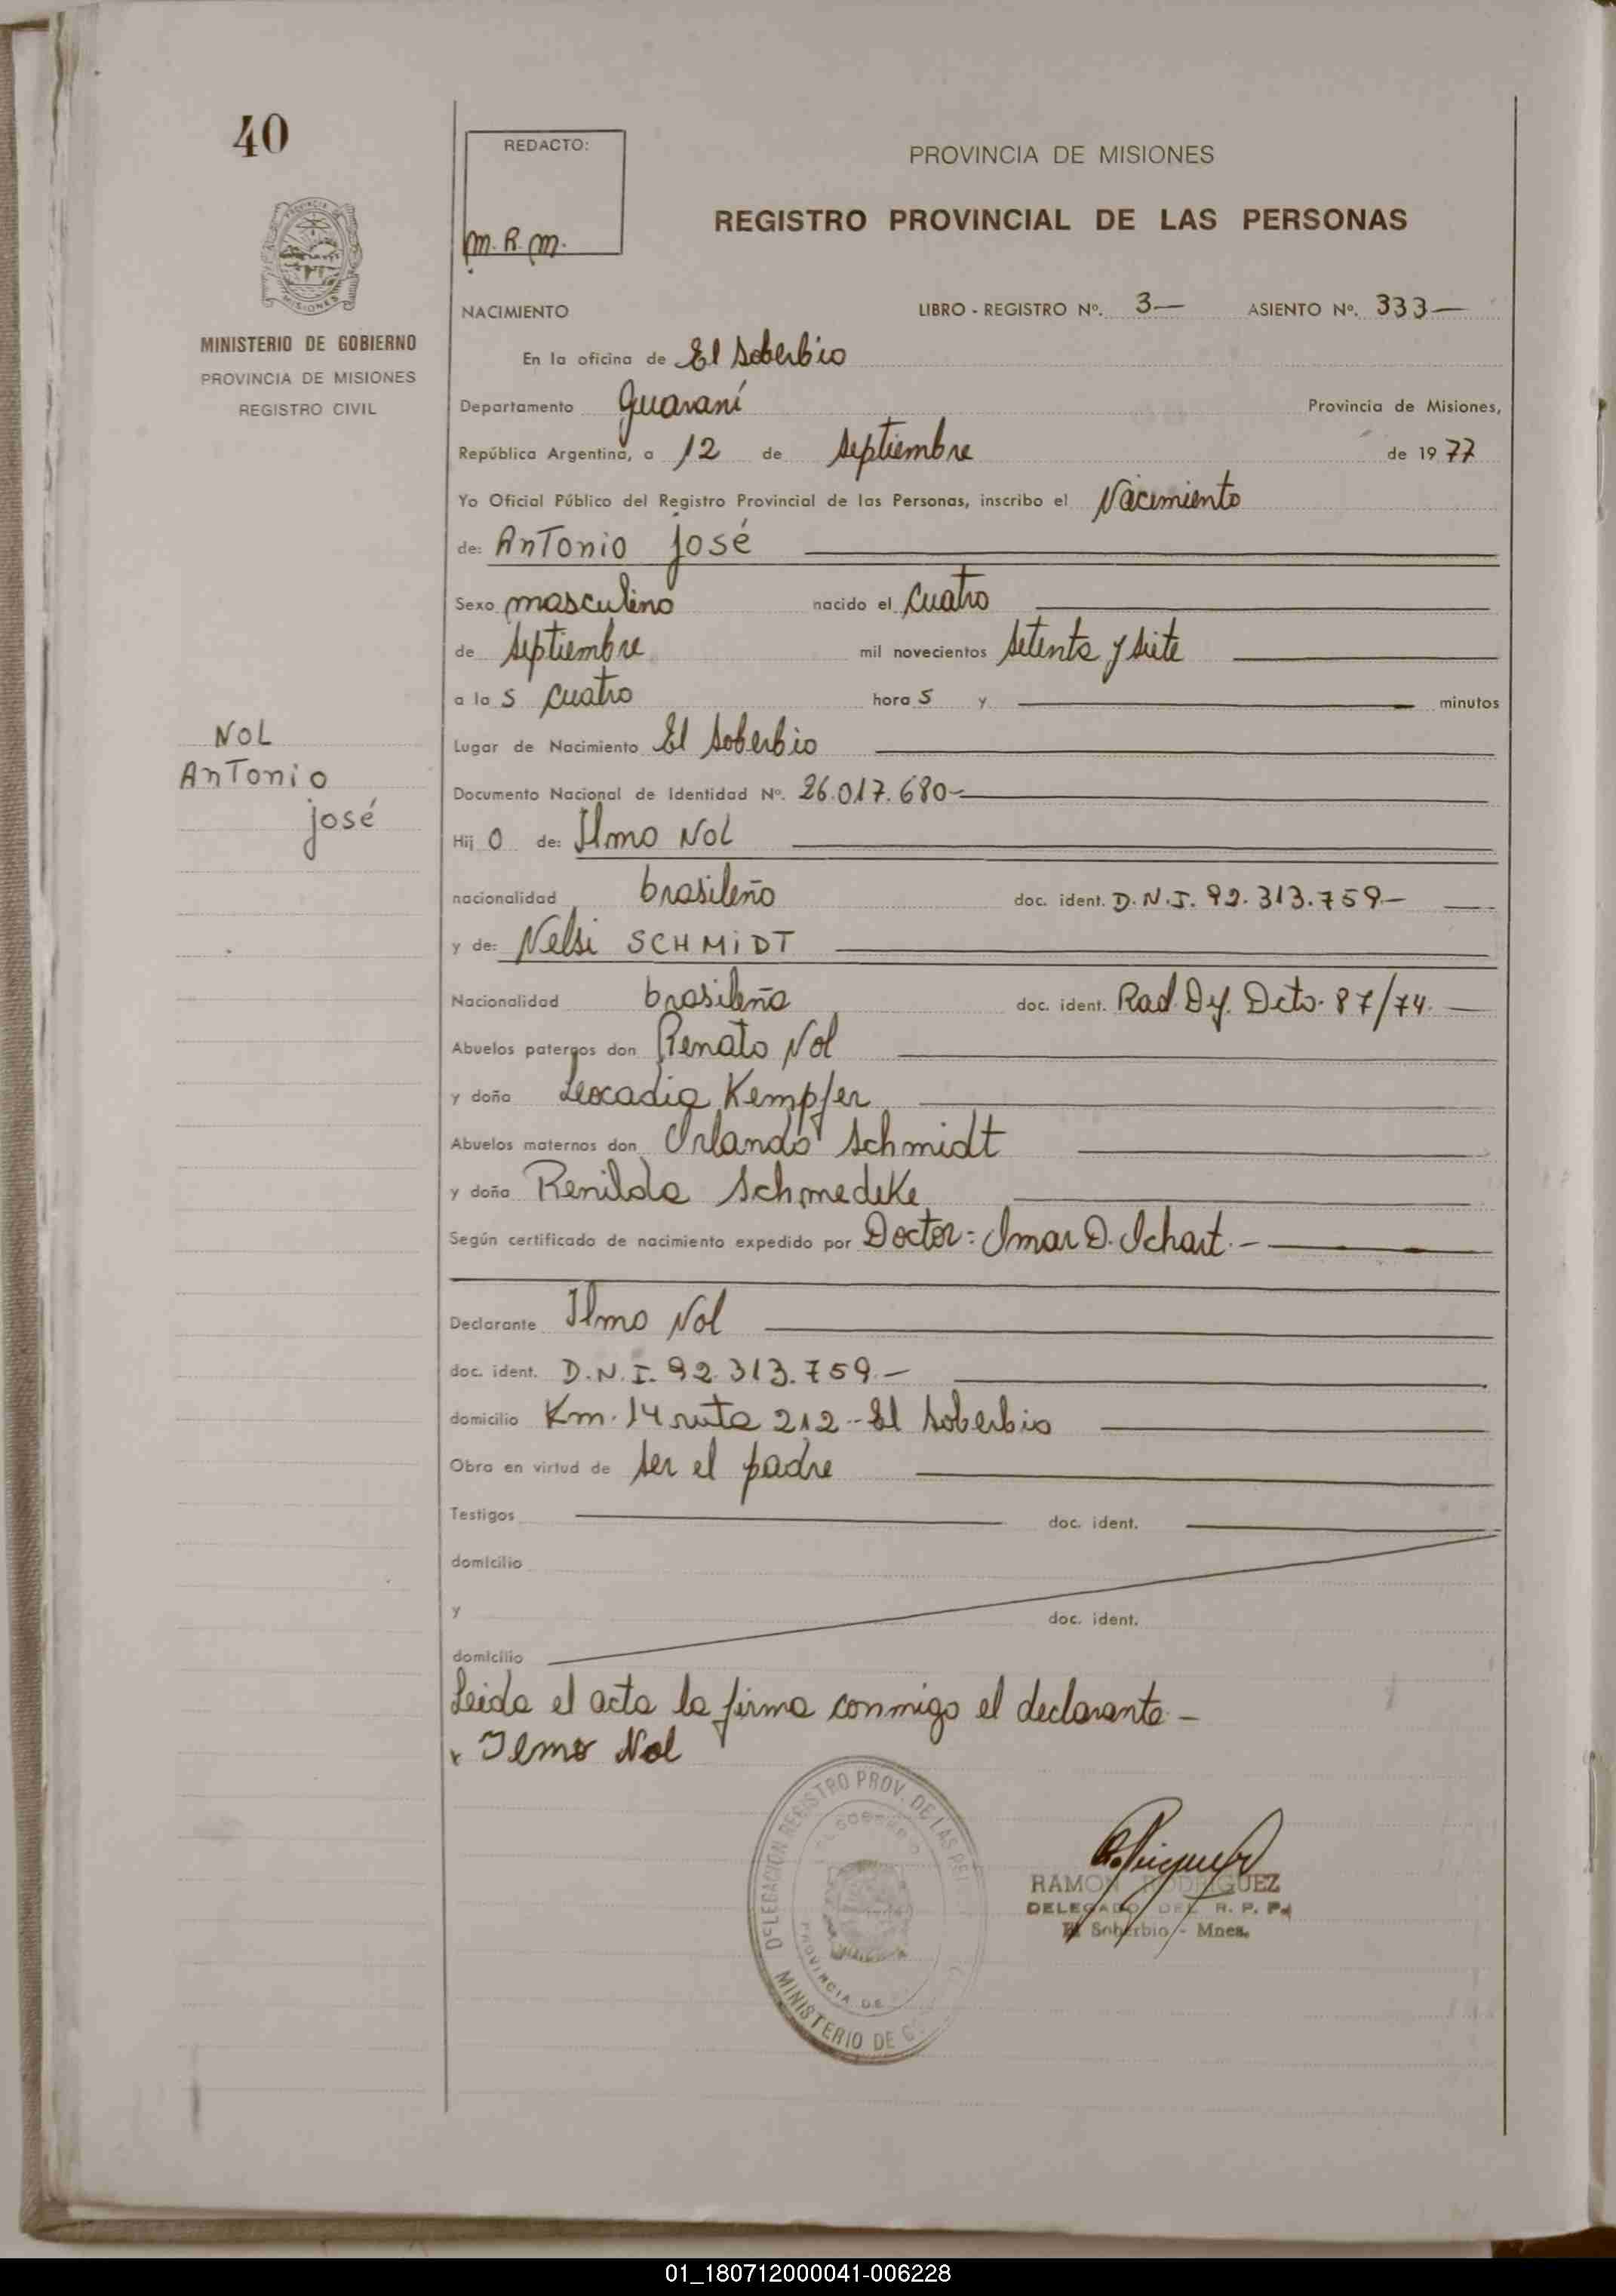 40
REDACTO:
M. R. M.
PROVINCIA DE MISIONES
REGISTRO PROVINCIAL DE LAS PERSONAS
MINISTERIO DE GOBIERNO
PROVINCIA DE MISIONES
REGISTRO CIVIL
NACIMIENTO LIBRO - REGISTRO Nº. 3— ASIENTO Nº. 333—
En la oficina de El Soberbio
Departamento Guaraní Provincia de Misiones,
República Argentina, a 12 de Septiembre de 1977
Yo Oficial Público del Registro Provincial de las Personas, inscribo el Nacimiento
de: Antonio José
Sexo masculino nacido el cuatro
de Septiembre mil novecientos Setenta y Siete
a las cuatro horas y minutos
NOL
Antonio
José
Lugar de Nacimiento El Soberbio
Documento Nacional de Identidad Nº. 26.017.680-
Hijo de: Ilmo Nol
nacionalidad brasileño doc. ident. D.N.I. 92.313.759.—
y de: Nelsi SCHMIDT
Nacionalidad brasileña doc. ident. Rad. Df. Dcto. 87/74.
Abuelos paternos don Renato Nol
y doña Leocadia Kempfer
Abuelos maternos don Orlando Schmidt
y doña Renilda Schmedeke
Según certificado de nacimiento expedido por Doctor: Omar D. Ichart.-
Declarante Ilmo Nol
doc. ident. D.N.I. 92.313.759.—
domicilio Km. 14 ruta 212 - El Soberbio
Obra en virtud de ser el padre
Testigos doc. ident.
domicilio
y doc. ident.
domicilio
Leida el acta la firma conmigo el declarante.-
x Ilmo Nol
DELEGACION REGISTRO PROV. DE LAS PER
EL SOBERBIO
PROVINCIA DE
MINISTERIO DE GO
RAMON RODRIGUEZ
DELEGADO DEL R. P. P.
El Soberbio - Mnes.
01_180712000041-006228